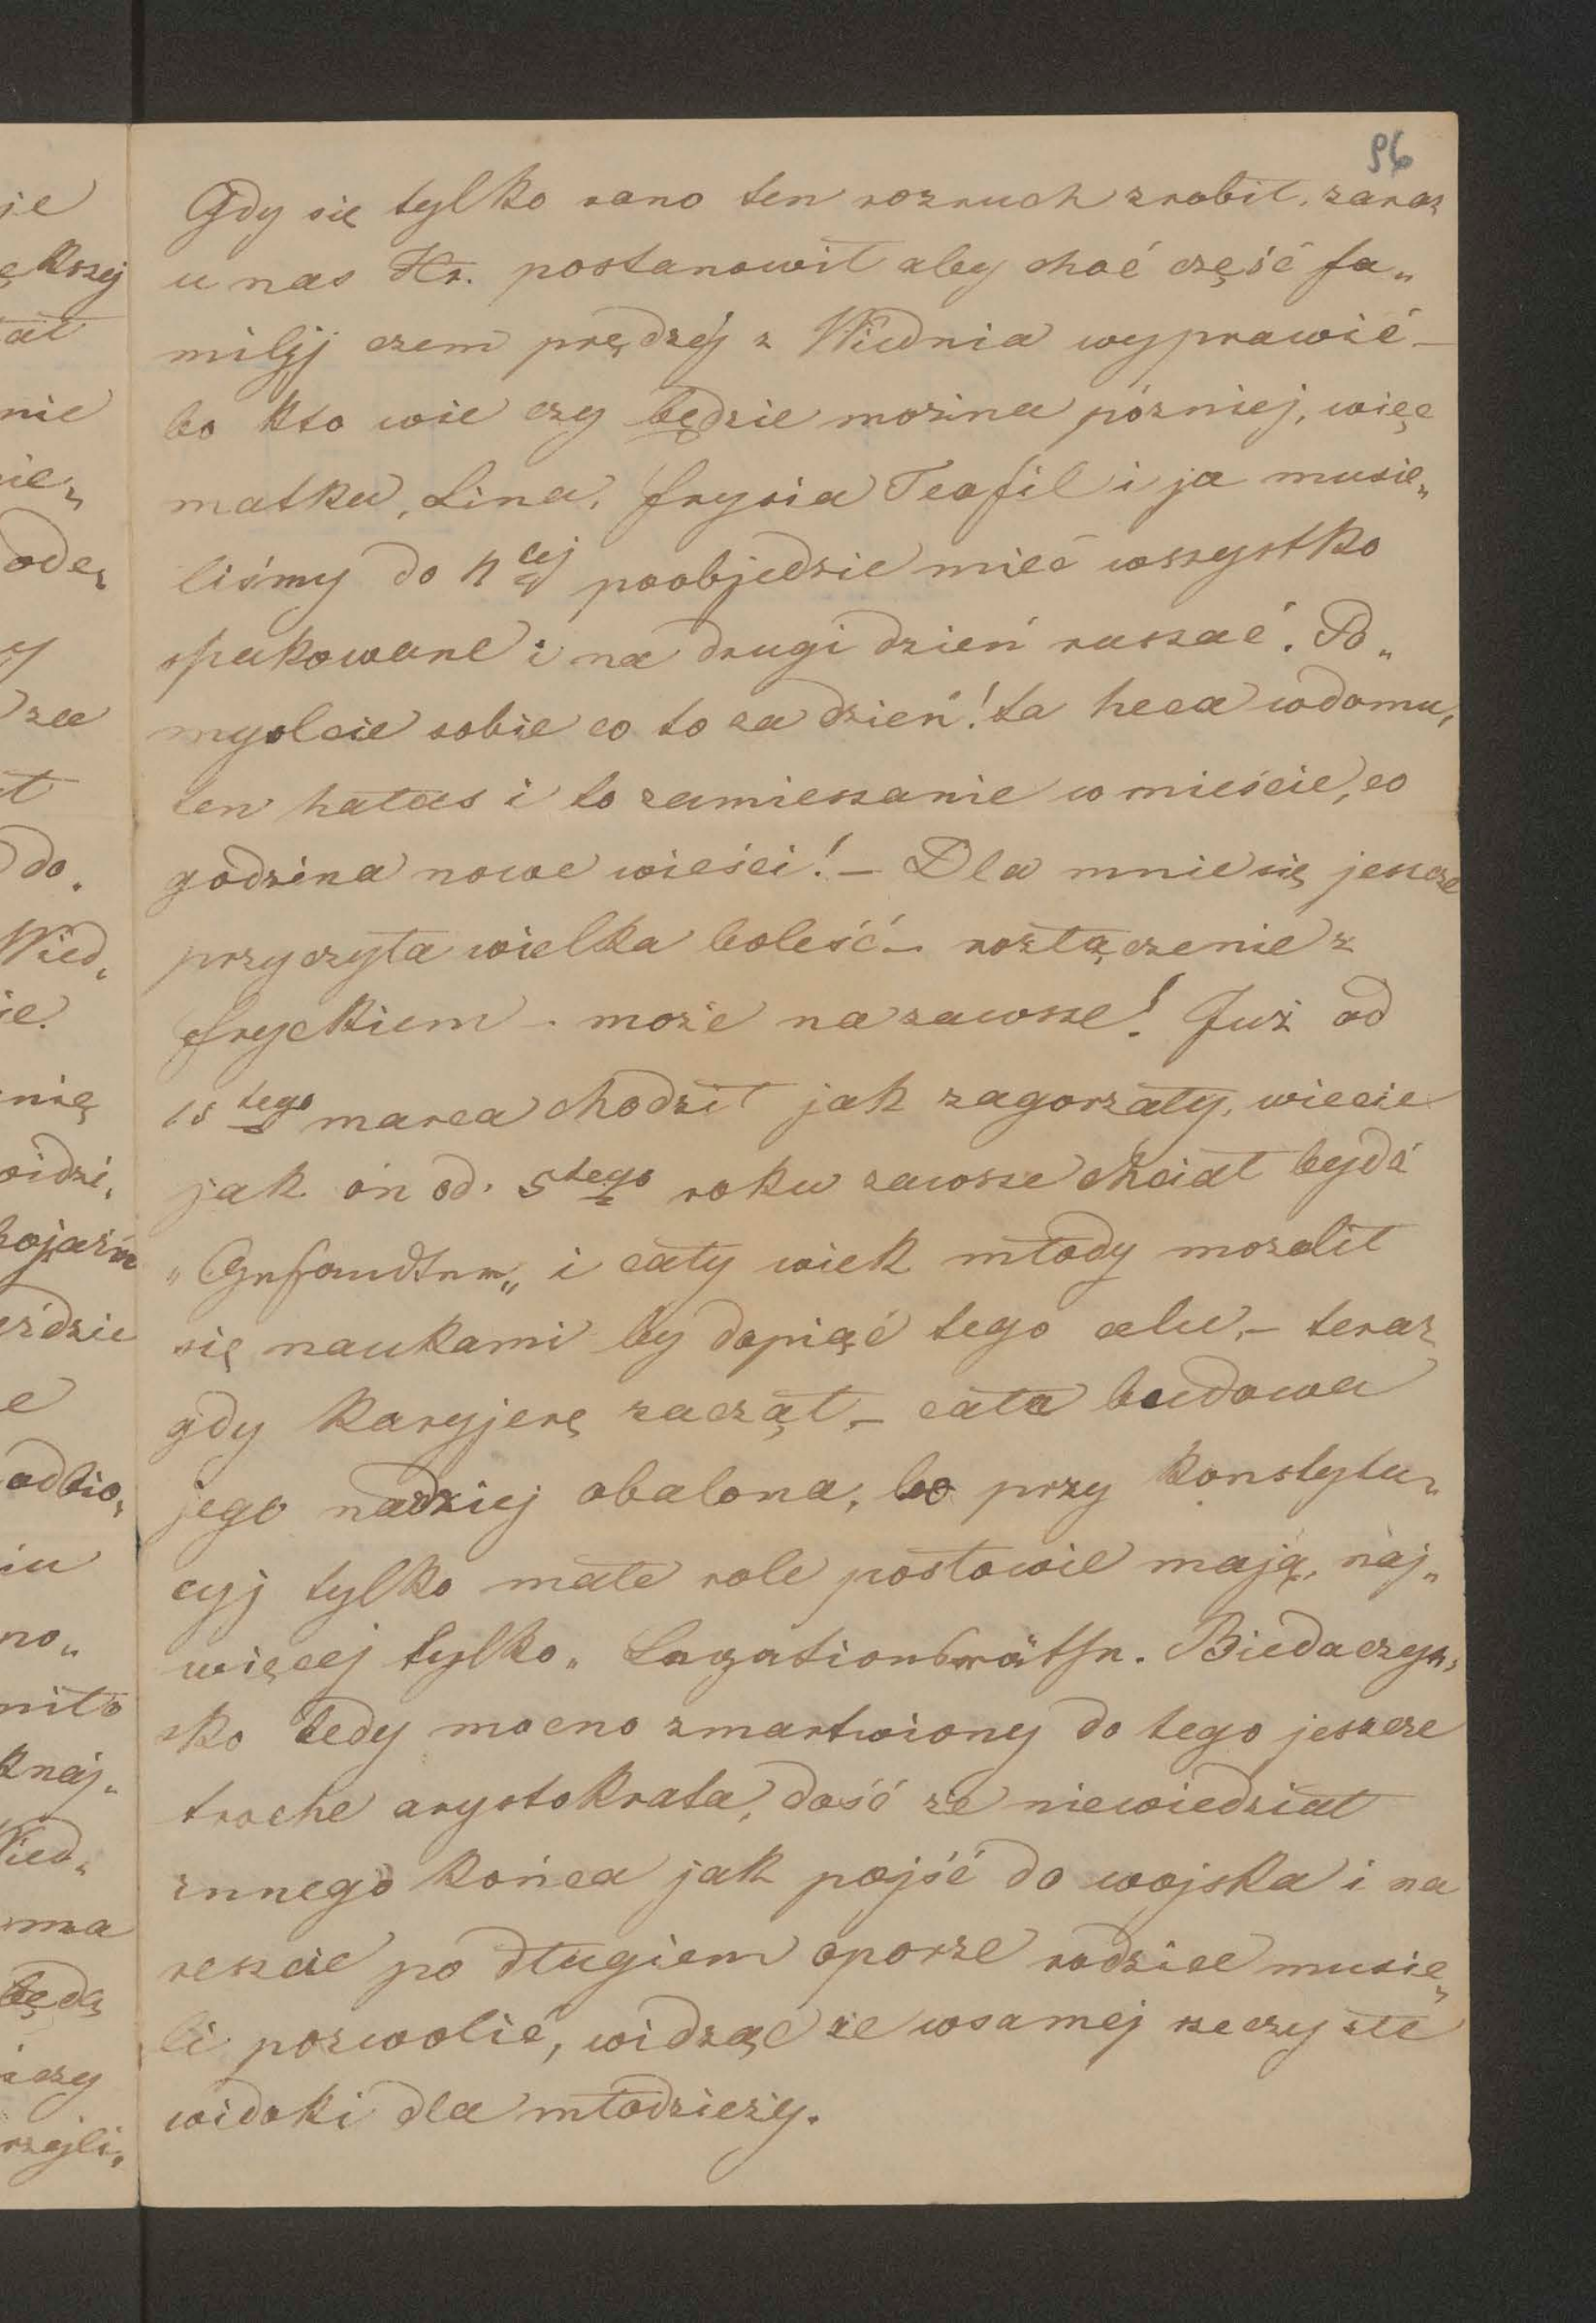 96
Gdy się tylko rano ten rozruch zrobił, zaraz
u nas Hr. postanowił aby choć część fa„
milij czem prędzéj z Wiednia wyprawić –
bo kto wie czy będzie mozina pózniej, więc
matka, Lina, frysia Teofil i ja musie„
liśmy do 4tej poobjedzie mieć wszystko
spakowane i na drugi dzień ruszać. Po„
myslcie sobie co to za dzień! ta heca wdomu,
ten hałas i to zamieszanie w mieście, co
godzina nowe wieści! – Dla mnie się jeszcze
przyczyta wielka boleść – rozłączenie z
fryckiem – może nazawsze! Już od
15tego marca chodził jak zagorzały, wiecie
jak ón od 5tego roku zawsze chciał bydź
„Gesandter„ i cały wiek młody mozolił
się naukami by dopiąć tego celu, – teraz
gdy karyjerę zaczął, – cała budowa
jego nadziej obalona, bo przy konstytu„
cyj tylko małe role posłowie mają, naj„
więcej tylko „ Legationsräthe. Biedaczys„
ko tedy mocno zmartwiony do tego jeszcze
troche arystokrata, dość że niewiedział
innego końca jak pójść do wojska i na
reszcie po długiem oporze rodzice musie„
li pozwolić, widząc że wsamej rzeczy złe
widoki dla młodzieży.
je
ększej
ał
nie
ie„
ode„
y
za
ł
do„
Wied„
ie.
nię
oidzi„
bojaźń
eździe
e
odbio„
iu
no„
niło
knaj„
Wied„
ma
będą
i czy
rzyli„